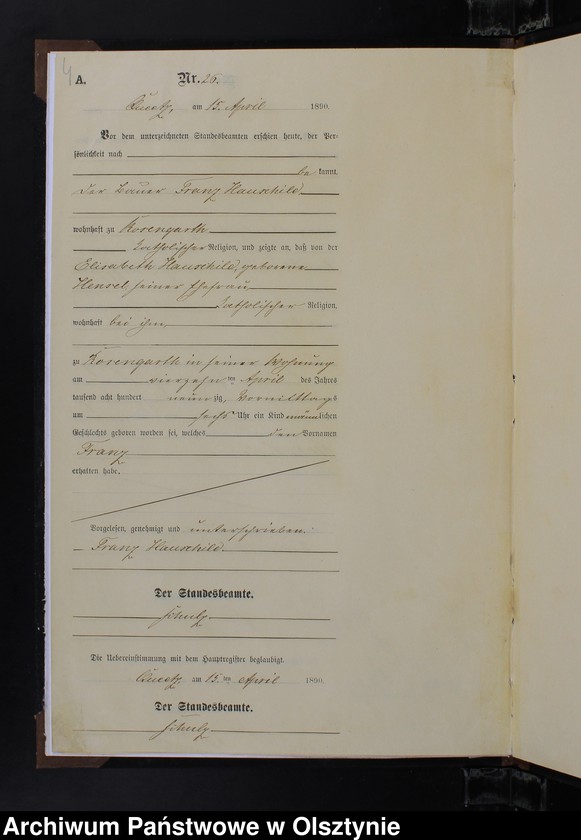 A.
Nr. 26.
Queetz, am 15. April 1890.
Vor dem unterzeichneten Standesbeamten erschien heute, der Per-
sönlichkeit nach
be kannt,
der Bauer Franz Hauschild
wohnhaft zu Rosengarth
katholischer Religion, und zeigte an, daß von der
Elisabeth Hauschild, geborene
Hensel, seiner Ehefrau
katholischer Religion,
wohnhaft bei ihm
zu Rosengarth in seiner Wohnung
am vierzehn ten April des Jahres
tausend acht hundert neunzig, Vormittags
um sechs Uhr ein Kind männlichen
Geschlechts geboren worden sei, welches den Vornamen
Franz
erhalten habe.
Vorgelesen, genehmigt und unterschrieben.
Franz Hauschild.
Der Standesbeamte.
Schulz.
Die Uebereinstimmung mit dem Hauptregister beglaubigt.
Queetz am 15. ten April 1890.
Der Standesbeamte.
Schulz
Archiwum Państwowe w Olsztynie